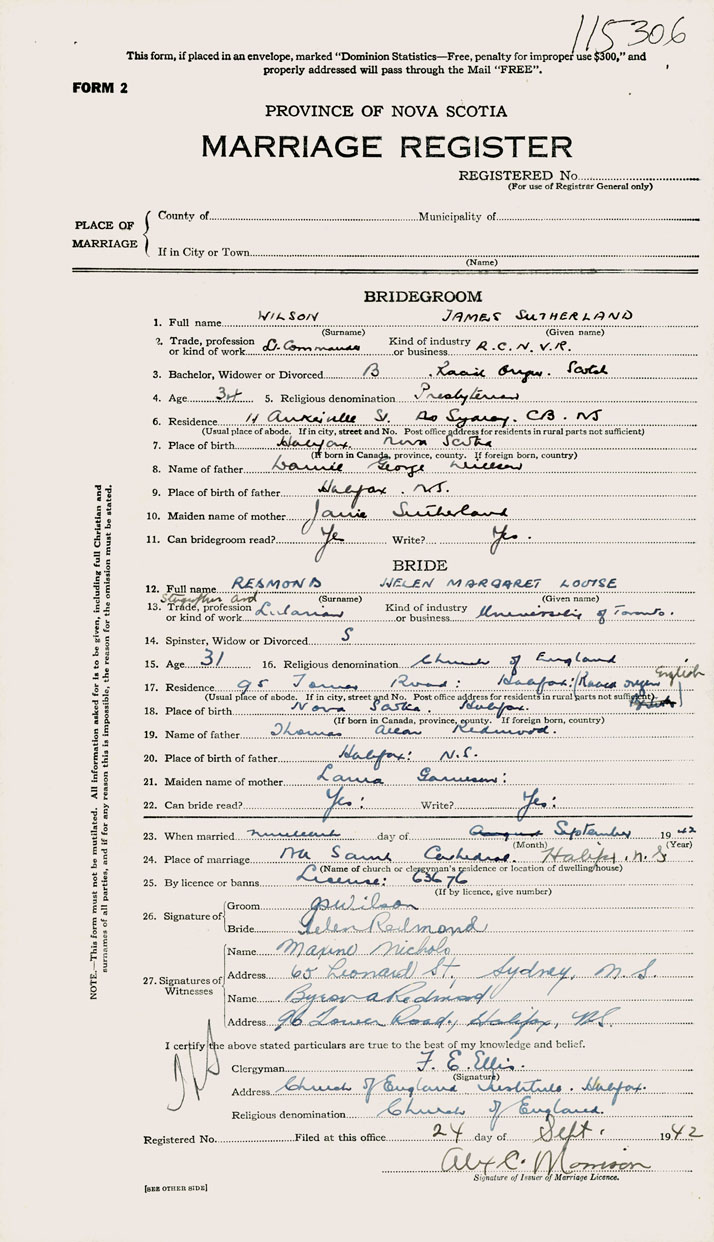 115306
This form, if placed in an envelope, marked "Dominion Statistics—Free, penalty for improper use $300," and
properly addressed will pass through the Mail "FREE".
FORM 2
PROVINCE OF NOVA SCOTIA
MARRIAGE REGISTER
REGISTERED No.
(For use of Registrar General only)
PLACE OF MARRIAGE
County of Municipality of
If in City or Town
(Name)
BRIDEGROOM
1. Full name WILSON JAMES SUTHERLAND
(Surname) (Given name)
2. Trade, profession or kind of work Lt. Commander Kind of industry or business R.C.N.V.R.
3. Bachelor, Widower or Divorced B Racial Origin. Scotch
4. Age 34 5. Religious denomination Presbyterian
6. Residence 11 St. So Sydney. C.B. NS
(Usual place of abode. If in city, street and No. Post office address for residents in rural parts not sufficient)
7. Place of birth Halifax, Nova Scotia
(If born in Canada, province, county. If foreign born, country)
8. Name of father George Wilson
9. Place of birth of father Halifax. N.S.
10. Maiden name of mother Janie Sutherland
11. Can bridegroom read? Yes Write? Yes.
BRIDE
12. Full name REDMOND HELEN MARGARET LOUISE
(Surname) (Given name)
Stenographer and
13. Trade, profession or kind of work Librarian Kind of industry or business University of Toronto.
14. Spinster, Widow or Divorced S
15. Age 31 16. Religious denomination Church of England
17. Residence 95 Road: Halifax: (Racial origin English)
(Usual place of abode. If in city, street and No. Post office address for residents in rural parts not sufficient)
18. Place of birth Nova Scotia. Halifax.
(If born in Canada, province, county. If foreign born, country)
19. Name of father Thomas Allan Redmond.
20. Place of birth of father Halifax: N.S.
21. Maiden name of mother Laura
22. Can bride read? Yes: Write? Yes:
23. When married nineteenth day of August September 1942
(Month) (Year)
24. Place of marriage All Saints Cathedral. Halifax, N.S
(Name of church or clergyman's residence or location of dwelling house)
25. By licence or banns License: 63676
(If by licence, give number)
26. Signature of
Groom JSWilson
Bride Helen Redmond
27. Signatures of Witnesses
Name Maxine Nichols
Address 65 Leonard St., Sydney, N.S.
Name Byron A Redmond
Address Tower Road, Halifax, N.S.
I certify the above stated particulars are true to the best of my knowledge and belief.
Clergyman F. E. Ellis.
(Signature)
Address Church of England Institute. Halifax.
Religious denomination Church of England.
Registered No. Filed at this office 24 day of Sept. 1942
Alex C. Morrison
Signature of Issuer of Marriage Licence.
[SEE OTHER SIDE]
NOTE.—This form must not be mutilated. All information asked for is to be given, including full Christian and
surnames of all parties, and if for any reason this is impossible, the reason for the omission must be stated.